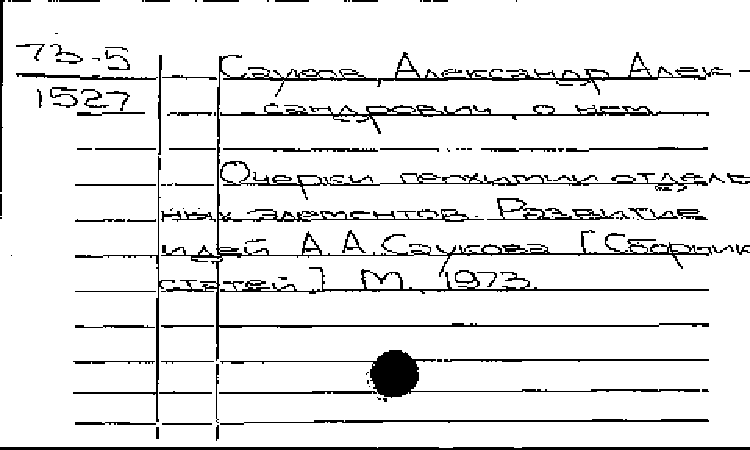 73-5
1527
Саукова, Александр Алек-
сандрович, о нем.
Очерки геохимии отдель
ных элементов. Развитие
идей А.А.Саукова [Сборник
статей] М. 1973.